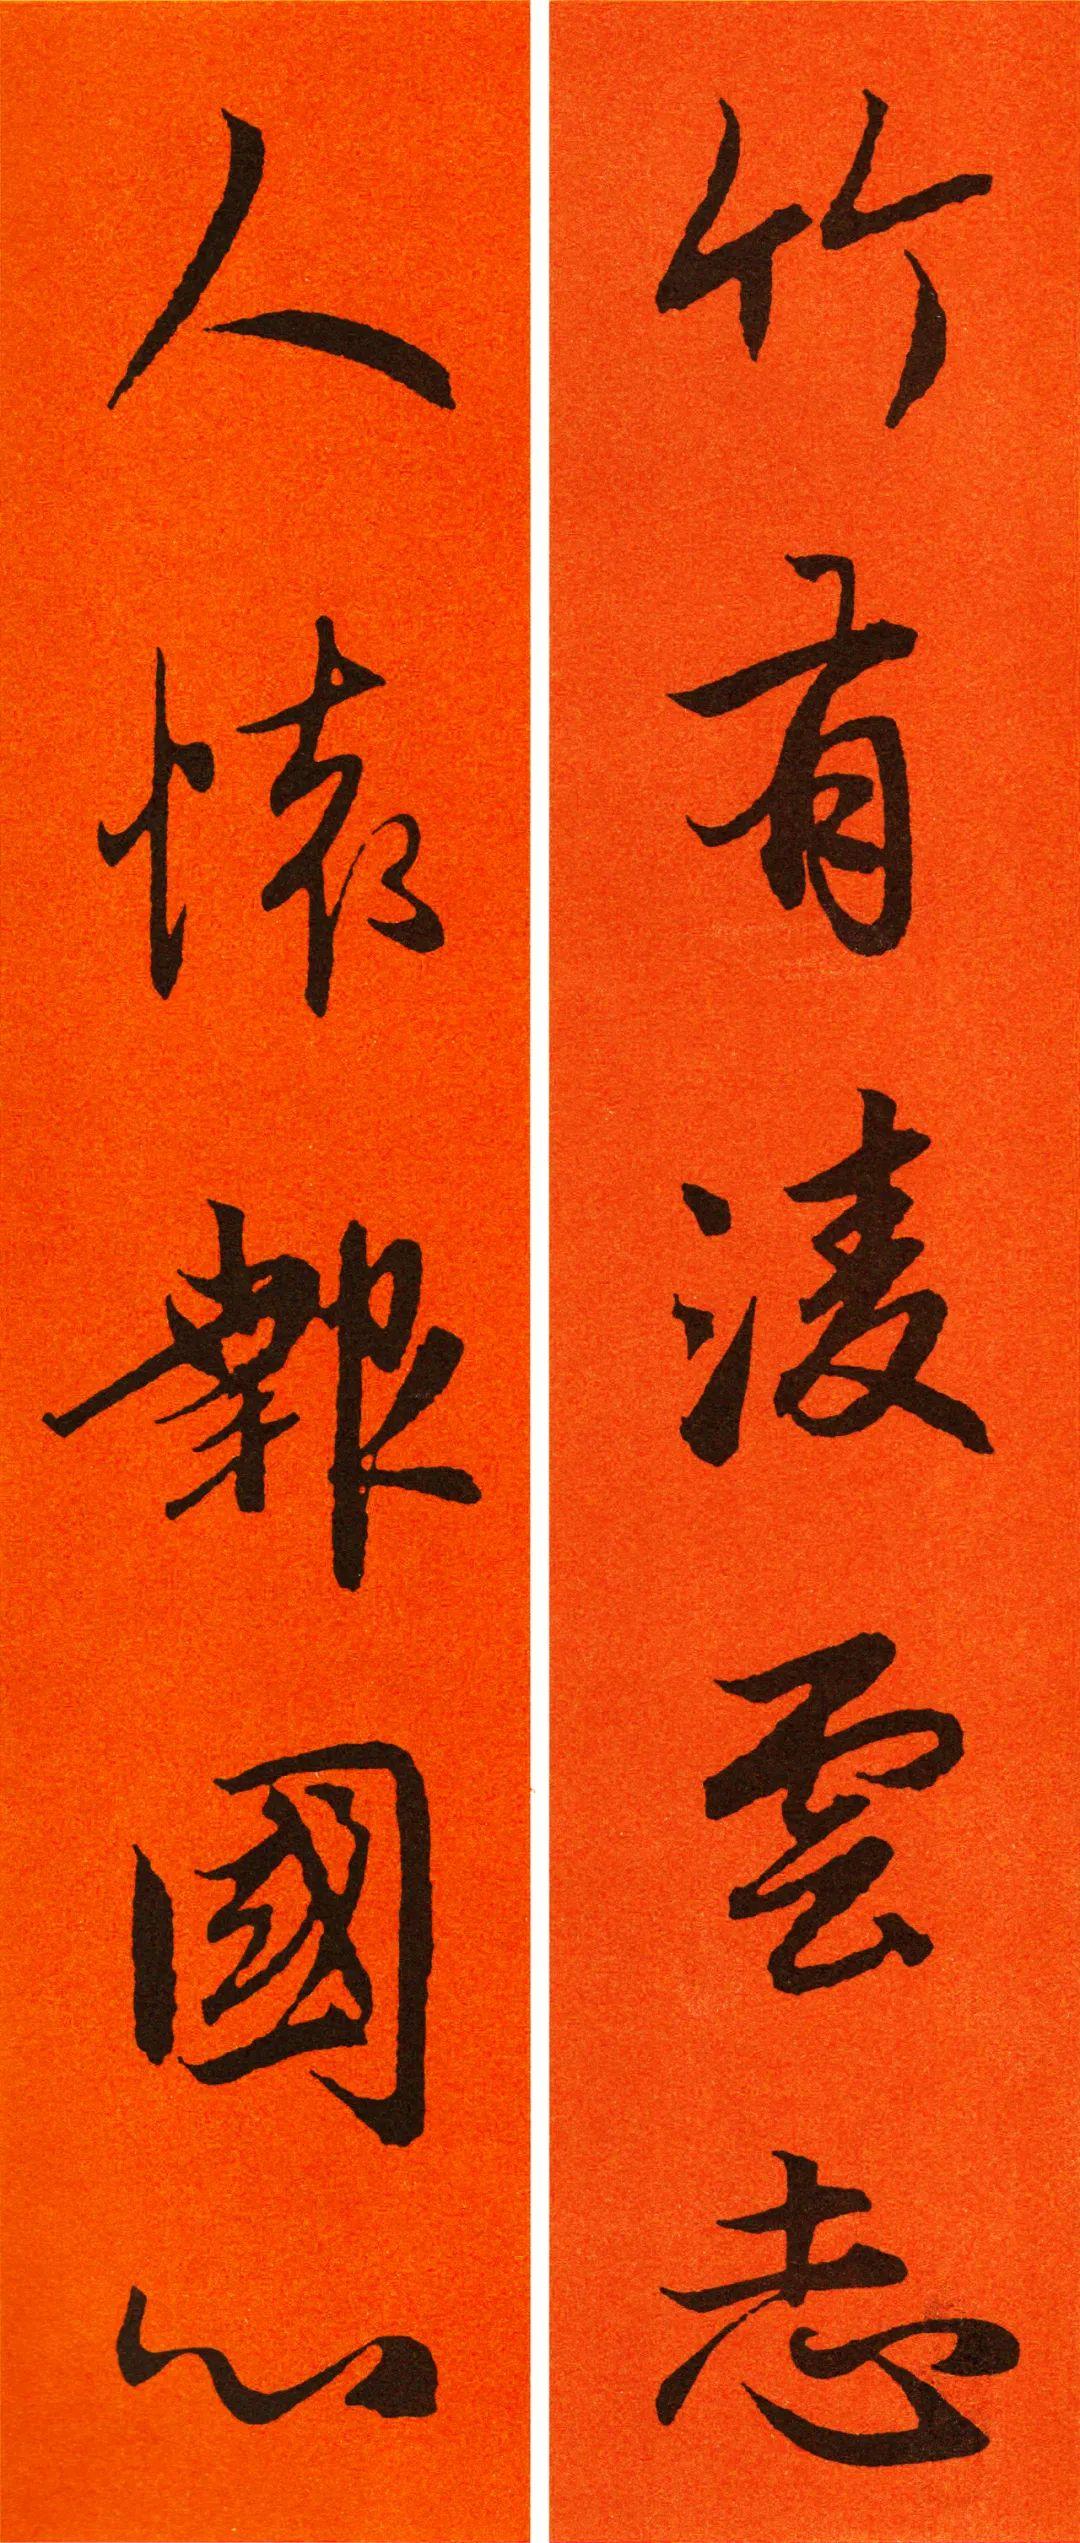 竹有淩雲志
人懷報國心